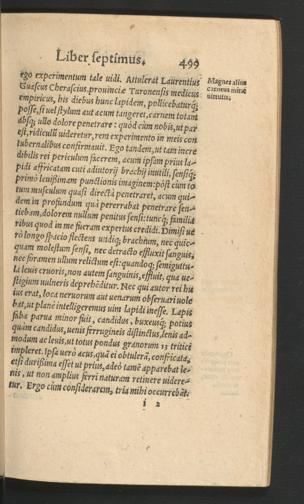 Liber septimus. 499
ego experimentum tale uidi. Attulerat Laurentius
Guascus Cherascius, prouinciæ Turonensis medicus
empiricus, his diebus hunc lapidem, pollicebaturq́;
posse, si uel stylum aut acum tangeret, carnem totam
absq́; ullo dolore penetrare: quod cùm nobis, ut par
est, ridiculũ uideretur, rem experimento in meis con
tubernalibus confirmauit. Ego tandem, ut tam incre
dibilis rei periculum facerem, acum ipsam prius la-
pidi affricatam cuti adiutorij brachij inutili, sensiq́;
primò leuissimam punctionis imaginem: pòst cùm to
tum musculum quasi directà penetraret, acum qui-
dem in profundum quà pererrabat penetrare sen-
tiebam, dolorem nullum penitus sensi: tuncq́; familia
ribus quod in me fueram expertus credidi. Dimisi uè
rò longo spacio flectens undiq; brachiũ, nec quic-
quam molestum sensi, nec detracto effluxit sanguis,
nec foramen ullum relictum est: quandoq; semigutu-
la leuis cruoris, non autem sanguinis, effluit, qua ue-
stigium uulneris deprehẽditur. Nec qui autor rei hu
ius erat, loca neruorum aut uenarum obseruari uole
bat, ut planè intelligeremus uim lapidi inesse. Lapis
fabæ parua minor fuit, candidus, buxeusq́; potius
quàm candidus, uenis ferrugineis distinctus, lenis ad-
modum ac leuis, ut totus pondus granorum 13 tritici
impleret. Ipsa uerò acus, quã ei obtulerã, conspicata,
etsi durissima esset ut prius, adeò tamẽ apparebat le-
nis, ut non amplius ferri naturam retinere uidere-
tur. Ergo cùm considerarem, tria mihi occurrebãt:
i 2
Magnes alius
carneus miræ
uirtutis.